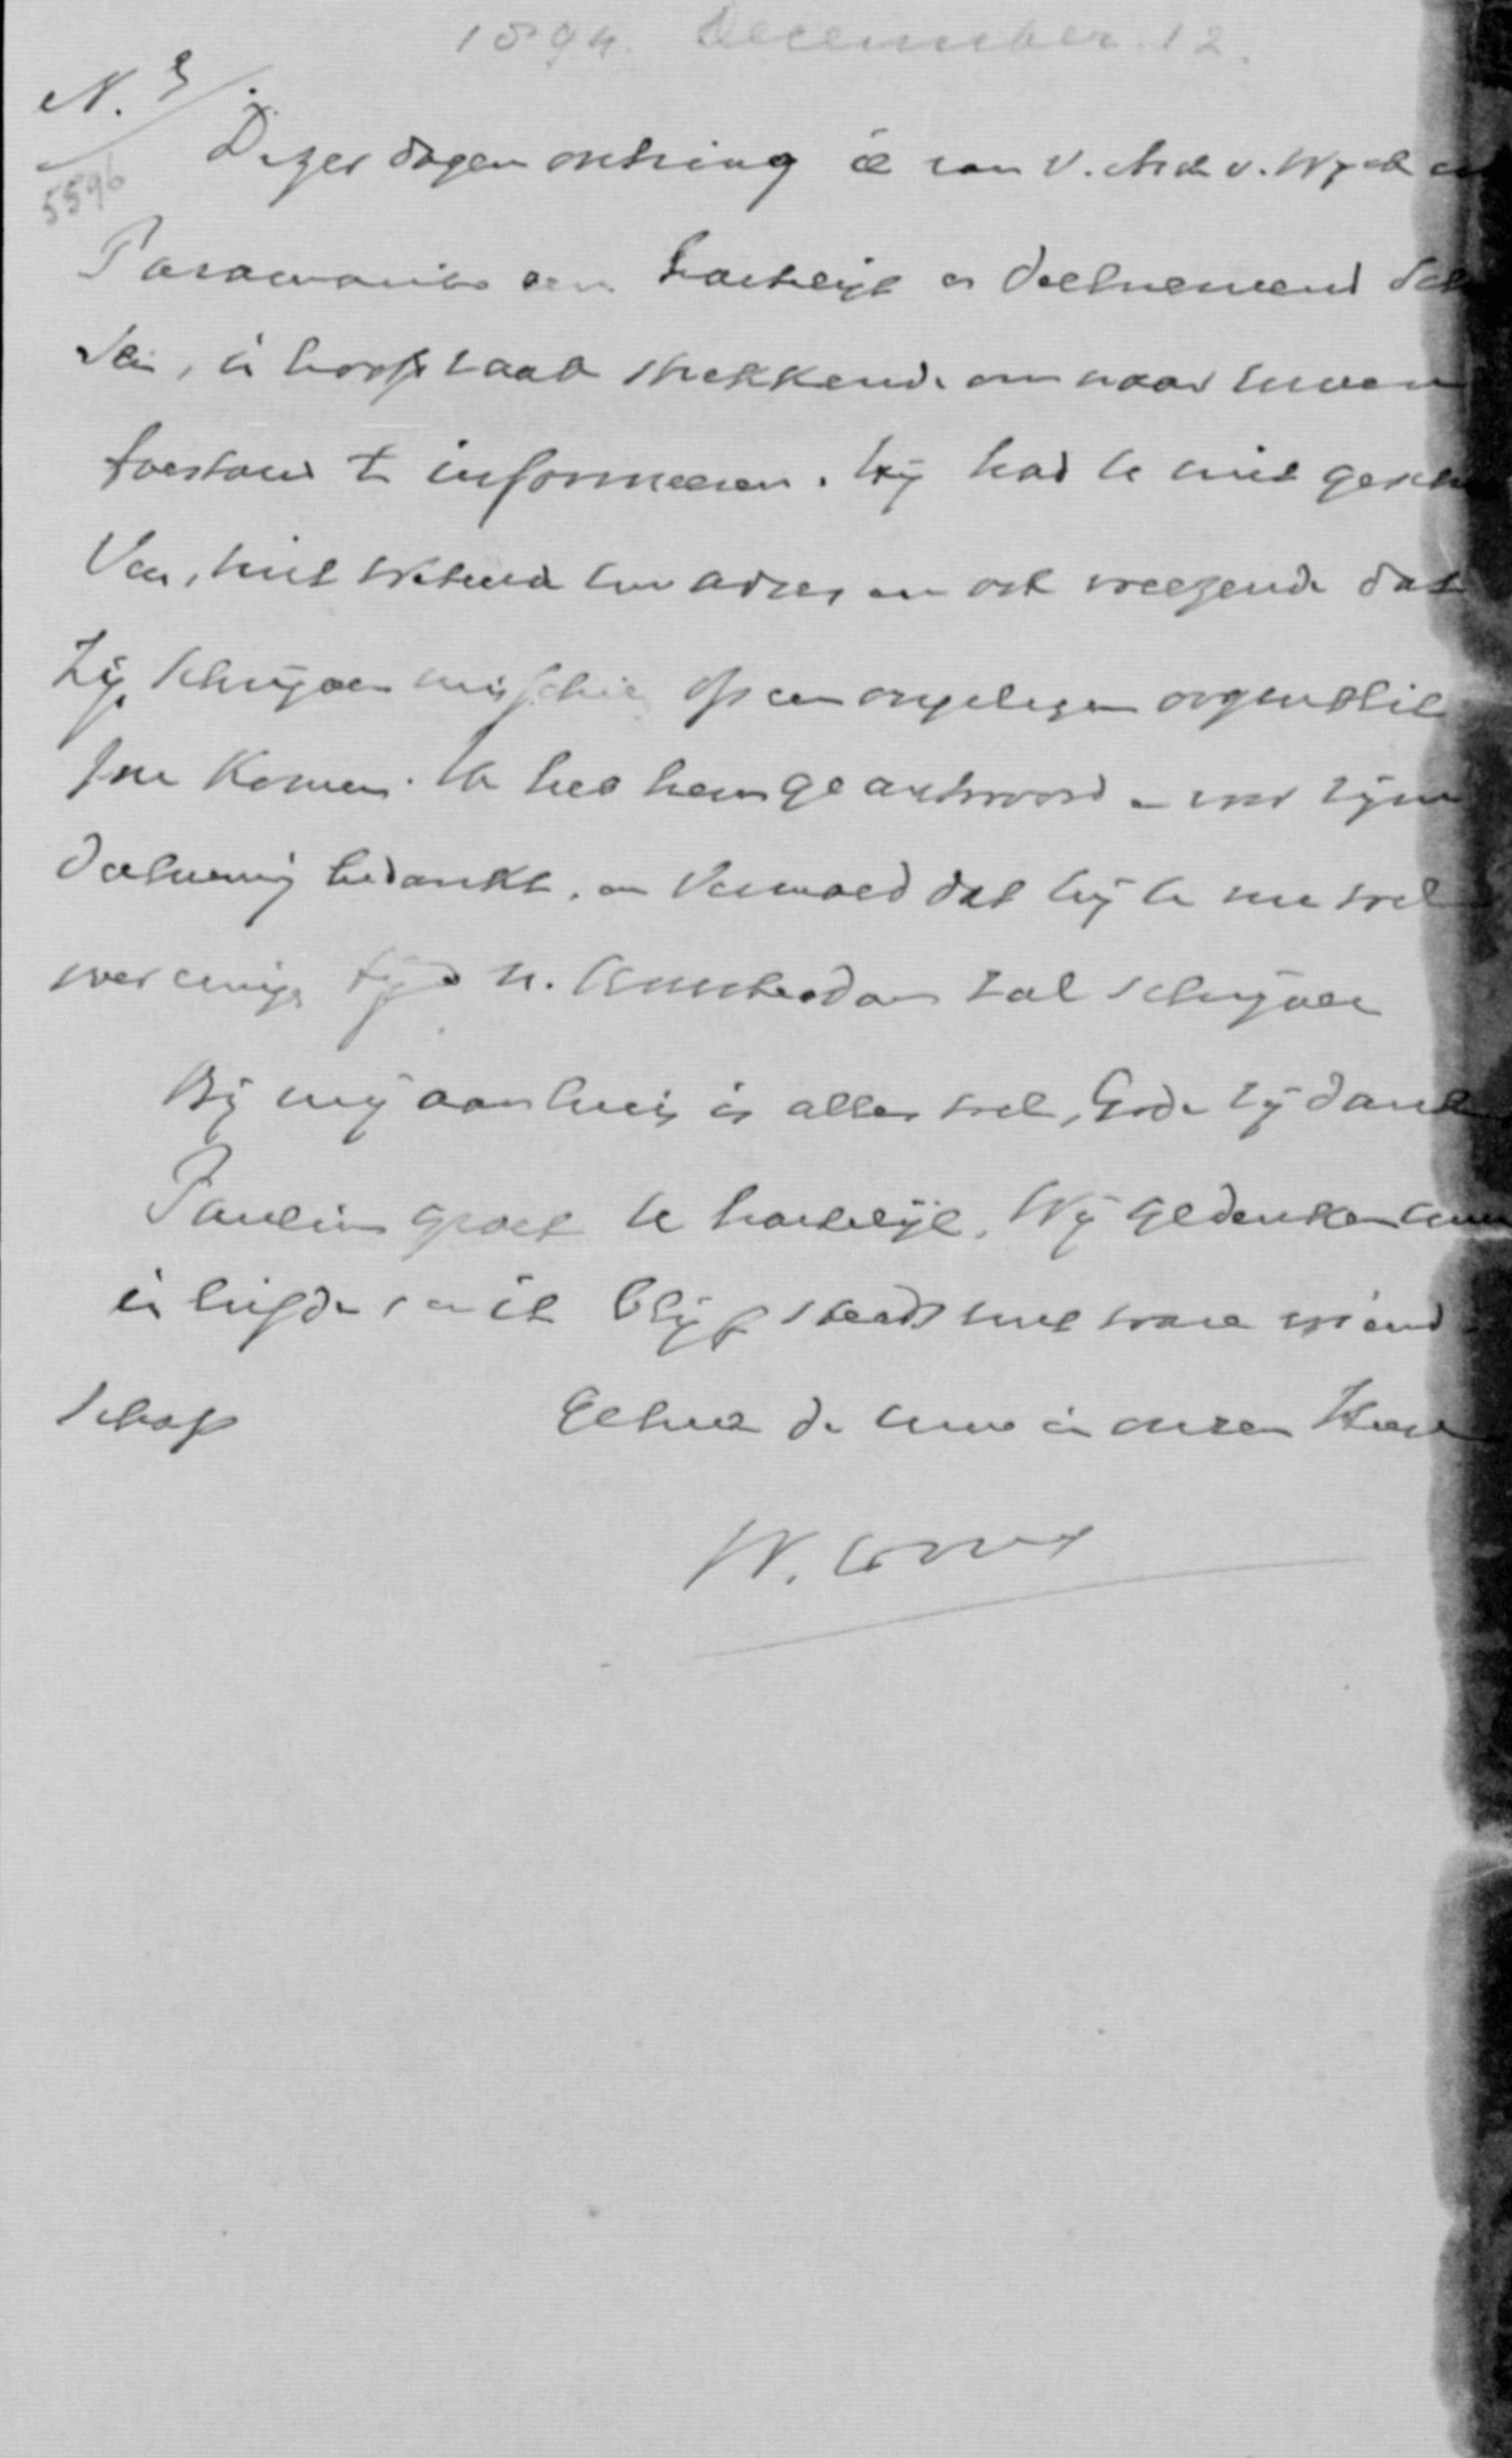 1894. December. 12.
N. 3/.
5596
Dezer dagen ontving ik van V. der v. Wyck
Paramaribo een hartelijk en deelnemend
in hoofdzaak strekkende om naar uwen
toestand te informeeren. Hij had U niet gesch
ven, niet wetend uw adres en ook vreezende dat
zijn schrijven misschien op een ongelegen oogenblik
zou komen. Ik heb hem geantwoord en voor zijne
deelneming bedankt, en vermoed dat hij U nu wel
over eenigen tijd n. Amsterdam zal schrijven
Bij mij aan huis is alles wel, Gode zij dank
Pauline groet U hartelijk. Wij gedenken Uwer
in liefde en ik blijf steeds met ware vriend-
schap
Geheel de Uwe in onzen Heer
W.